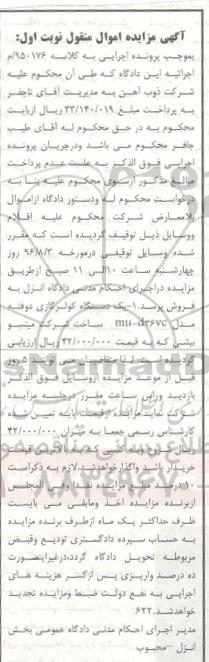 آگهی مزایده اموال منقول نوبت اول:
بموجب پرونده اجرایی به کلاسه ۹۵۰۱۷۶/م
اجرائیه این دادگاه که طی آن محکوم علیه
شرکت ذوب آهن به مدیریت آقای تاجفر
به پرداخت مبلغ ۳۳/۱۴۰/۰۱۹ ریال ازبابت
محکوم به در حق محکوم له آقای طیب
جافر محکوم می باشد ودرجریان پرونده
اجرایی فوق الذکر به علت عدم پرداخت
مبالغ مذکور ازسوی محکوم علیه بنا به
درخواست محکوم له ودستور دادگاه ازاموال
بلامعارض شرکت محکوم علیه اقلام
ووسایل ذیل توقیف گردیده است که مقرر
شده وسایل توقیفی درمورخه ۹۶/۸/۳ روز
چهارشنبه ساعت ۱۰الی ۱۱ صبح ازطریق
مزایده دراجرای احکام مدنی دادگاه انزل به
فروش برسد.۱-یک دستگاه کولرگازی دوتنه
مدل mu-dr۶vc ساخت شرکت میتسو
بیشی که به قیمت ۴۲/۰۰۰/۰۰۰ ریال ارزیابی
گردیده است لذا متقاضیان می توانند ۵ روز
قبل از موعد مزایده ازوسایل فوق الذکر
بازدید ورأس ساعت مقرر درجلسه مزایده
شرکت نمایند.مزایده ازقیمت پایه تعیین شده
کارشناس رسمی جمعا به میزان ۴۲/۰۰۰/۰۰۰
ریال شروع وبه کسانی که بالاترین قیمت
خریدار باشد واگذارخواهدشد.لازم به ذکراست
۱۰ درصد مبلغ مزایده نقدا وفی المجلس
ازبرنده مزایده اخذ ومابقی می بایست
ظرف حداکثر یک ماه ازطرف برنده مزایده
به حساب سپرده دادگستری تودیع وقبض
مربوطه تحویل دادگاه گردد،درغیراینصورت
ده درصد واریزی پس ازکسر هزینه های
اجرایی به نفع دولت ضبط ومزایده تجدید
خواهدشد.۶۲۲
مدیر اجرای احکام مدنی دادگاه عمومی بخش
انزل - محبوب